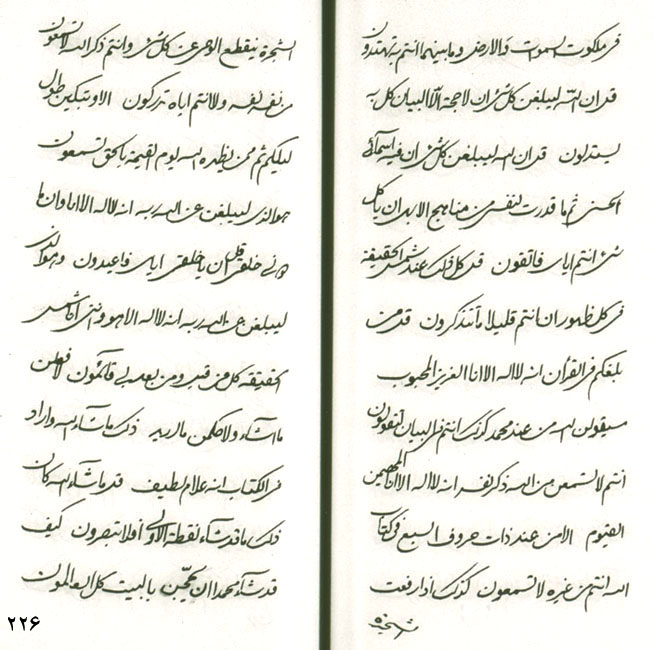 فی ملکوت السموات والارض وما بینهما انتم به تهتدون
قد ان الله لیبلغن کل شیء ان لا حجة الا البیان کل به
یستدلون قد ان الله لیبلغن کل شیء ان فیه اسمائی
الحسنی ثم ما قدرت لنفس من مناهج الامر ان یا کل
شیء انتم ایای فاتقون قد کل ذلک عند شمس الحقیقة
فی کل ظهور ان انتم قلیلا ما تتذکرون قد من
یبلغکم فی القرآن انه لا اله الا انا العزیز المحبوب
سیقولن الله من عند محمد کذلک انتم فی البیان لتقولون
انتم لا تسمعن من الله ذکر نفسه انه لا اله الا انا المهیمن
القیوم الا من عند ذات حروف السبع فی کتاب
الله انتم من غیره لا تسمعون کذلک اذا رفعت
الشجرة
الشجرة ینقطع الوحی عن کل شیء وانتم ذکر الله لا تسمعون
من نفسه لنفسه ولا انتم ایاه تدرکون الا وتبکین طول
لیلکم ثم ممن یظهره الله یوم القیمة بالحق لتسمعون
هو الذی لیبلغن عن الله ربه انه لا اله الا انا وان ما
دونی خلقی قل ان یا خلقی ایای فاعبدون وهو الذی
لیبلغن عن الله ربه انه لا اله الا هو واننی انا شمس
الحقیقة کل من قبل ومن بعد بی قائمون لافعلن
ما اشاء ولاحکمن ما ارید ذلک ما شاء الله واراد
فی الکتاب انه علام لطیف قد ما شاء الله کان
ذلک ما قد شاء نقطة الاولی افلا تبصرون کیف
قد شاء محمد ان یحجن بالبیت کل العالمون
۲۲۶